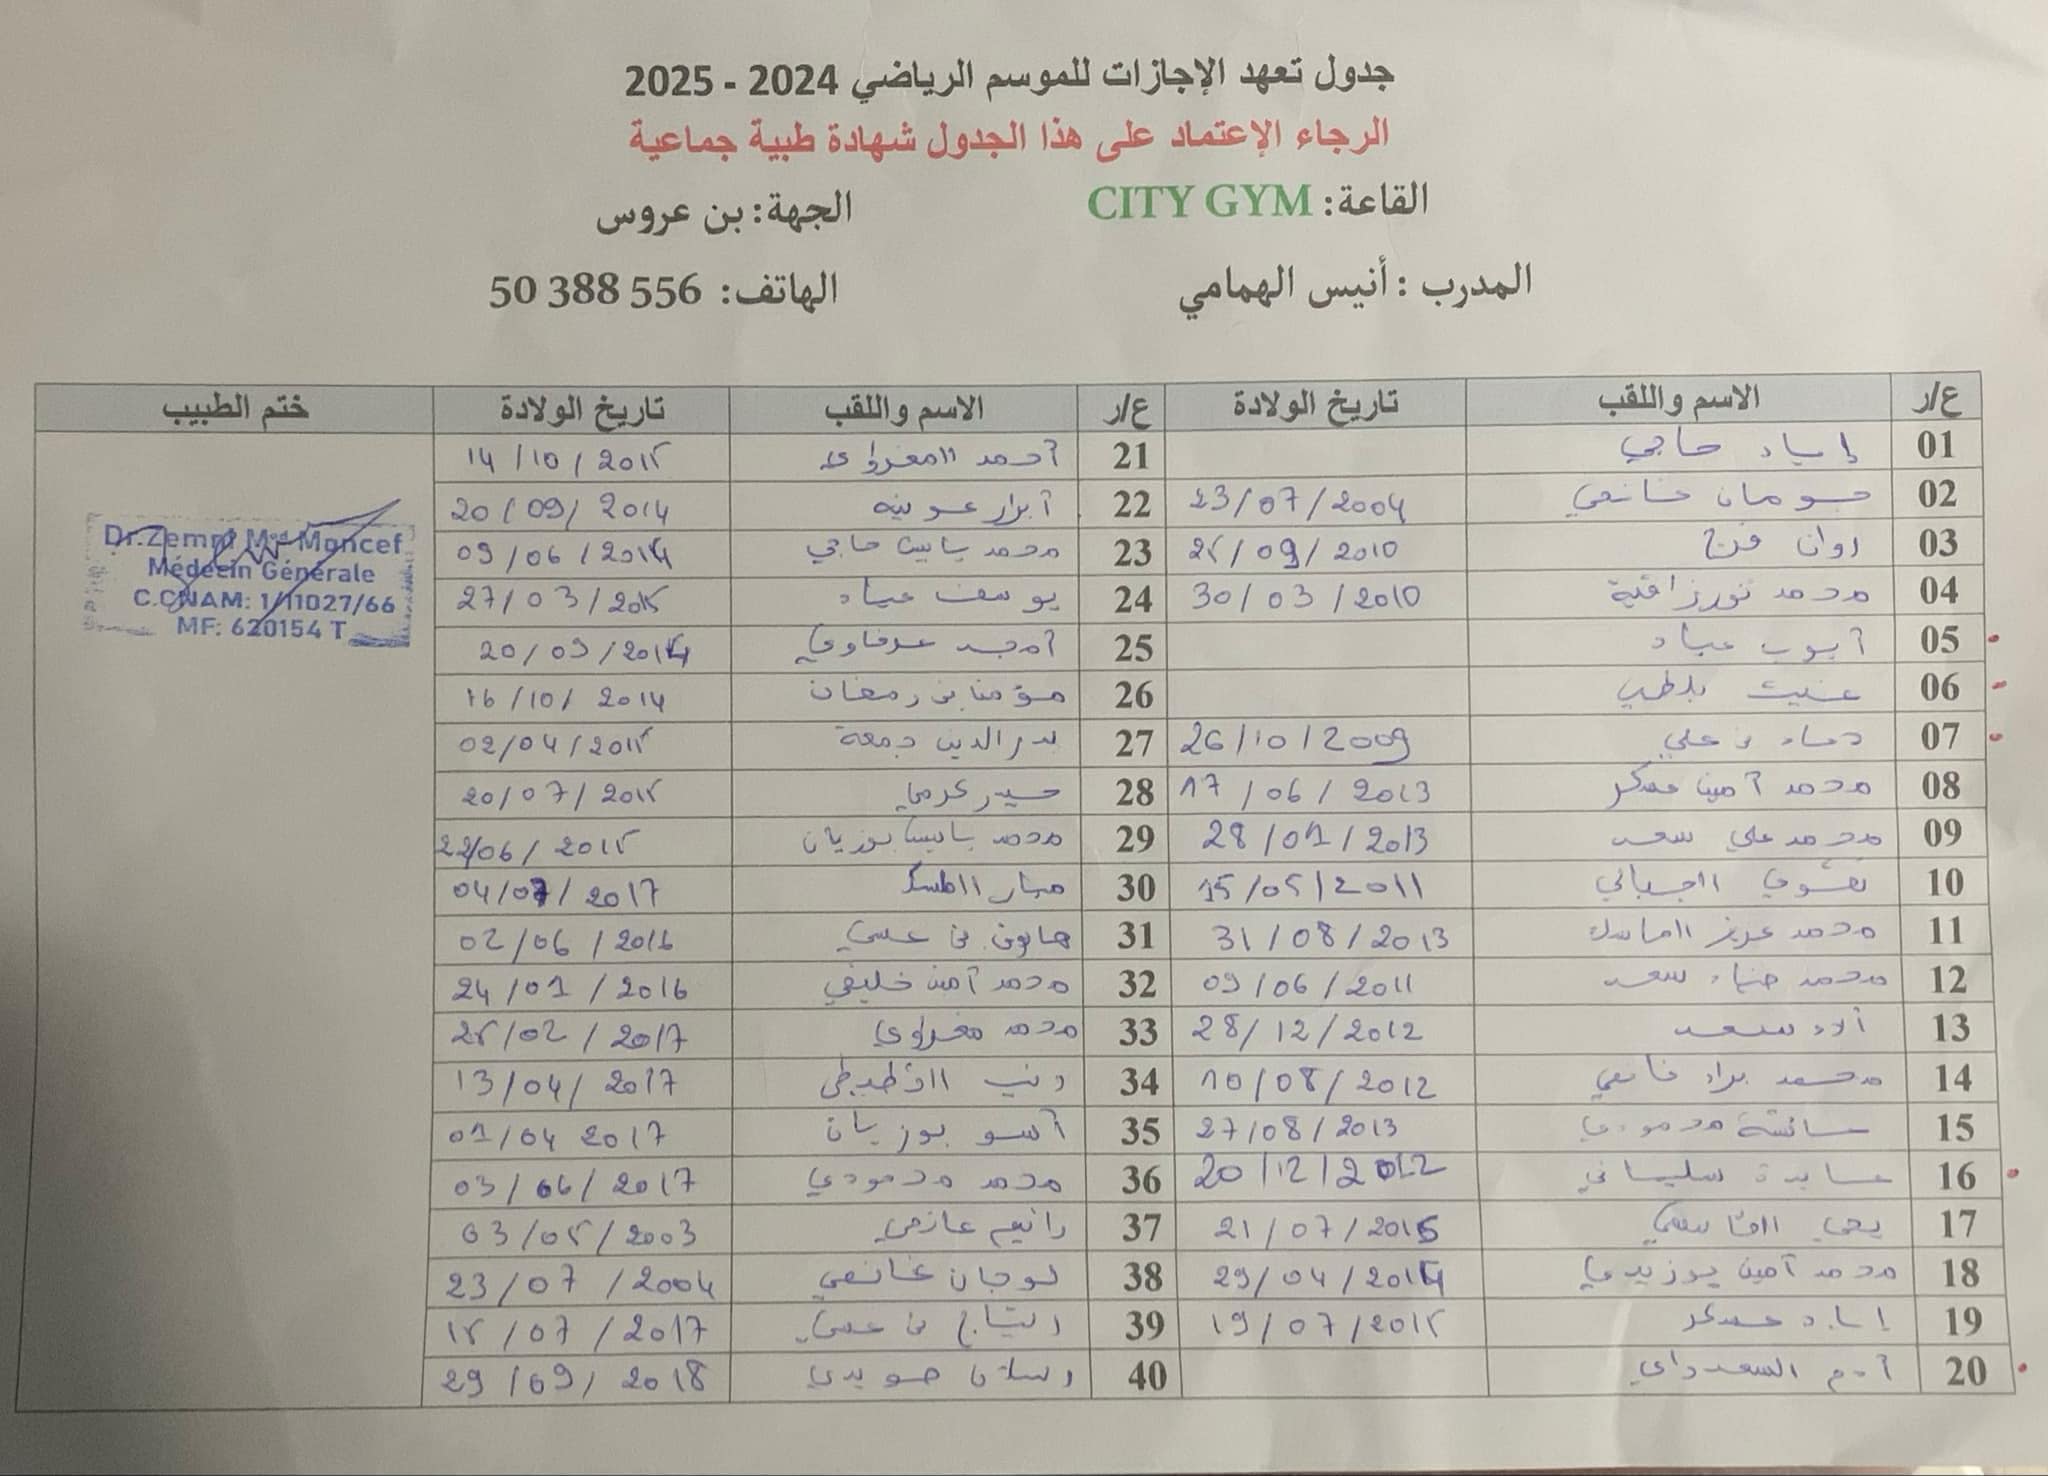 جدول تعهد الإجازات للموسم الرياضي 2024 - 2025
الرجاء الإعتماد على هذا الجدول شهادة طبية جماعية
القاعة: CITY GYM الجهة: بن عروس
المدرب : أنيس الهمامي الهاتف: 50 388 556
ع/ر الاسم واللقب تاريخ الولادة ع/ر الاسم واللقب تاريخ الولادة ختم الطبيب
01 إياد حاجي 21 أحمد 14/10/2015
02 غانمي 23/07/2004 22 أبرار عوينه 20/09/2014
03 روان فرج 25/09/2010 23 محمد ياسين حاجي 09/06/2014
04 محمد 30/03/2010 24 يوسف عياد 27/03/2015
05 أيوب عياد 25 أمجد عرفاوي 20/09/2014
06 26 بن رمضان 16/10/2014
07 بن علي 26/10/2009 27 بدر الدين جمعة 02/04/2015
08 محمد أمين عسكر 17/06/2013 28 حيدر كرمي 20/07/2015
09 محمد علي سعد 28/01/2013 29 محمد ياسين بوزيان 22/06/2015
10 تقوى الجبالي 15/05/2011 30 04/07/2017
11 محمد عزيز 31/08/2013 31 بن عيسى 02/06/2016
12 محمد ضياء سعد 09/06/2011 32 محمد أمين خليفي 24/01/2016
13 آلاء سعد 28/12/2012 33 محمد مغراوي 25/02/2017
14 محمد براء غانمي 10/08/2012 34 13/04/2017
15 محمودي 27/08/2013 35 بوزيان 01/04 2017
16 سليماني 20/12/2012 36 محمد محمودي 03/06/2017
17 يحي القاسمي 21/07/2015 37 رانيم 03/05/2003
18 محمد أمين بوزيدي 29/04/2014 38 لوجان غانمي 23/07/2004
19 إياد عسكر 19/07/2015 39 بن عيسى 15/07/2017
20 آدم السعداي 40 29/09/2018
Dr.Zemni Med Moncef
Médecin Générale
C.CNAM: 1/11027/66
MF: 620154 T